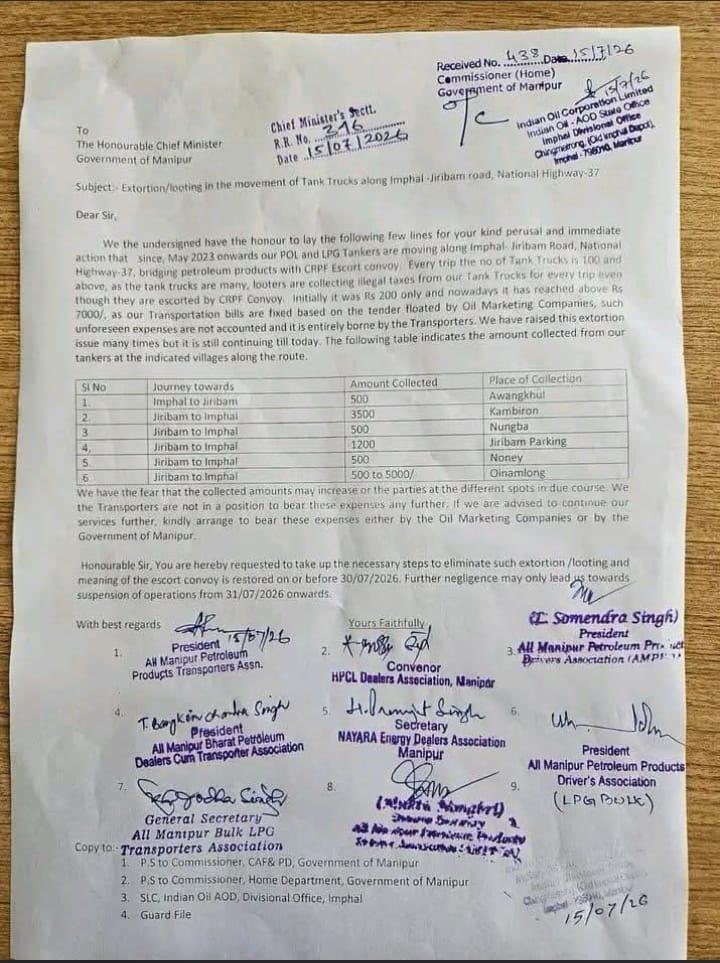 Received No. 438 Date 15/7/26
Commissioner (Home)
Government of Manipur
15/7/26
Indian Oil Corporation Limited
Indian Oil - AOD State Office
Imphal Divisional Office
Chingmeirong, (Old Imphal Depot),
Imphal - 795010, Manipur
Chief Minister's Sectt.
R.R. No. 216
Date 15/07/2026
To
The Honourable Chief Minister
Government of Manipur
Subject:- Extortion/looting in the movement of Tank Trucks along Imphal -Jiribam road, National Highway-37
Dear Sir,
We the undersigned have the honour to lay the following few lines for your kind perusal and immediate
action that since, May 2023 onwards our POL and LPG Tankers are moving along Imphal- Jiribam Road, National
Highway-37, bridging petroleum products with CRPF Escort convoy. Every trip the no of Tank Trucks is 100 and
above, as the tank trucks are many, looters are collecting illegal taxes from our Tank Trucks for every trip even
though they are escorted by CRPF Convoy. Initially it was Rs 200 only and nowadays it has reached above Rs
7000/, as our Transportation bills are fixed based on the tender floated by Oil Marketing Companies, such
unforeseen expenses are not accounted and it is entirely borne by the Transporters. We have raised this extortion
issue many times but it is still continuing till today. The following table indicates the amount collected from our
tankers at the indicated villages along the route.
Sl No Journey towards Amount Collected Place of Collection
1. Imphal to Jiribam 500 Awangkhul
2. Jiribam to Imphal 3500 Kambiron
3 Jiribam to Imphal 500 Nungba
4, Jiribam to Imphal 1200 Jiribam Parking
5. Jiribam to Imphal 500 Noney
6. Jiribam to Imphal 500 to 5000/ Oinamlong
We have the fear that the collected amounts may increase or the parties at the different spots in due course. We
the Transporters are not in a position to bear these expenses any further. If we are advised to continue our
services further, kindly arrange to bear these expenses either by the Oil Marketing Companies or by the
Government of Manipur.
Honourable Sir, You are hereby requested to take up the necessary steps to eliminate such extortion /looting and
meaning of the escort convoy is restored on or before 30/07/2026. Further negligence may only lead us towards
suspension of operations from 31/07/2026 onwards.
With best regards
Yours Faithfully
1. 15/07/26
President
All Manipur Petroleum
Products Transporters Assn.
2.
Convenor
HPCL Dealers Association, Manipur
3. (L. Somendra Singh)
President
All Manipur Petroleum
Drivers Association
4. Singh
President
All Manipur Bharat Petroleum
Dealers Cum Transporter Association
5. H. Premjit Singh
Secretary
NAYARA Energy Dealers Association
Manipur
6.
7. Singh
General Secretary
All Manipur Bulk LPG
Transporters Association
8.
9.
President
All Manipur Petroleum Products
Driver's Association
(LPG BULK)
Copy to:-
1. P.S to Commissioner, CAF& PD, Government of Manipur
2. P.S to Commissioner, Home Department, Government of Manipur
3. SLC, Indian Oil AOD, Divisional Office, Imphal
4. Guard File
15/07/26